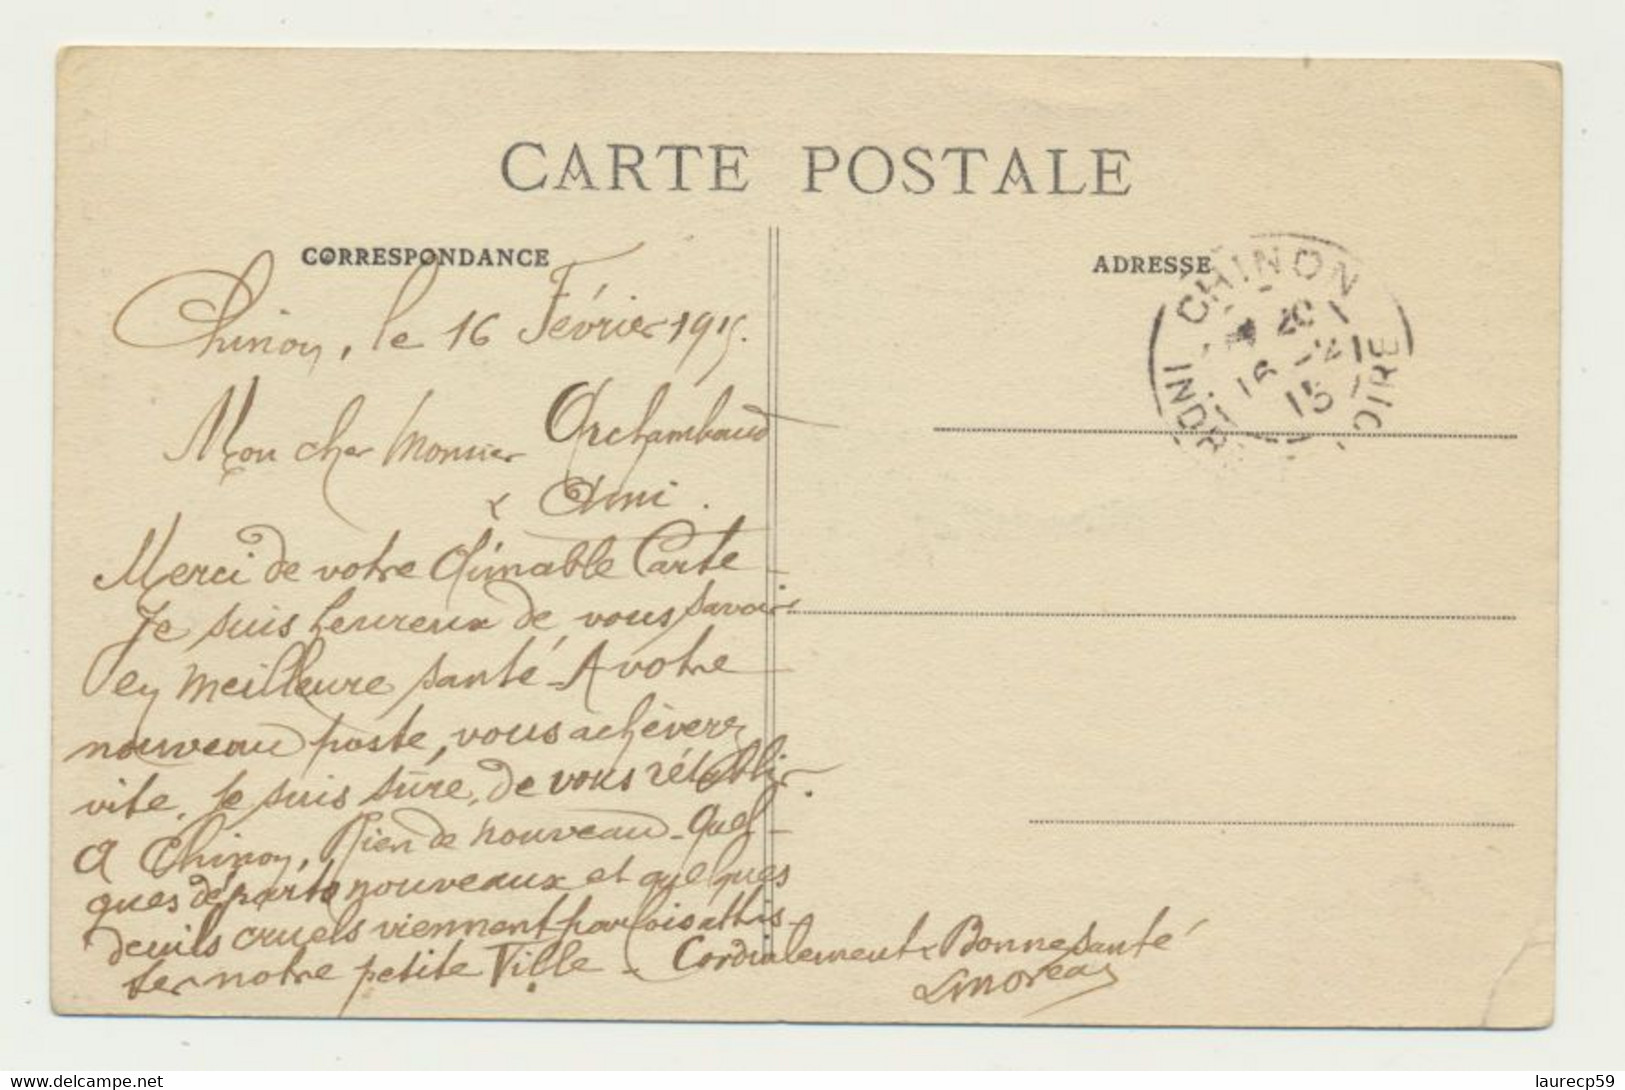 CARTE POSTALE
CORRESPONDANCE
ADRESSE
CHINON
20
16 -2
15
INDRE
LOIRE
Chinon, le 16 Février 1915.
Mon cher Monsieur Archambaud
& Ami.
Merci de votre Aimable Carte -
Je suis heureux de vous savoir
en meilleure santé - A votre
nouveau poste, vous achèverez
vite, je suis sûre, de vous rétablir.
A Chinon, Rien de nouveau - Quel-
ques départs nouveaux et quelques
deuils cruels viennent parfois attris-
ter notre petite Ville - Cordialement & Bonne santé
LMoreau
laurecp59